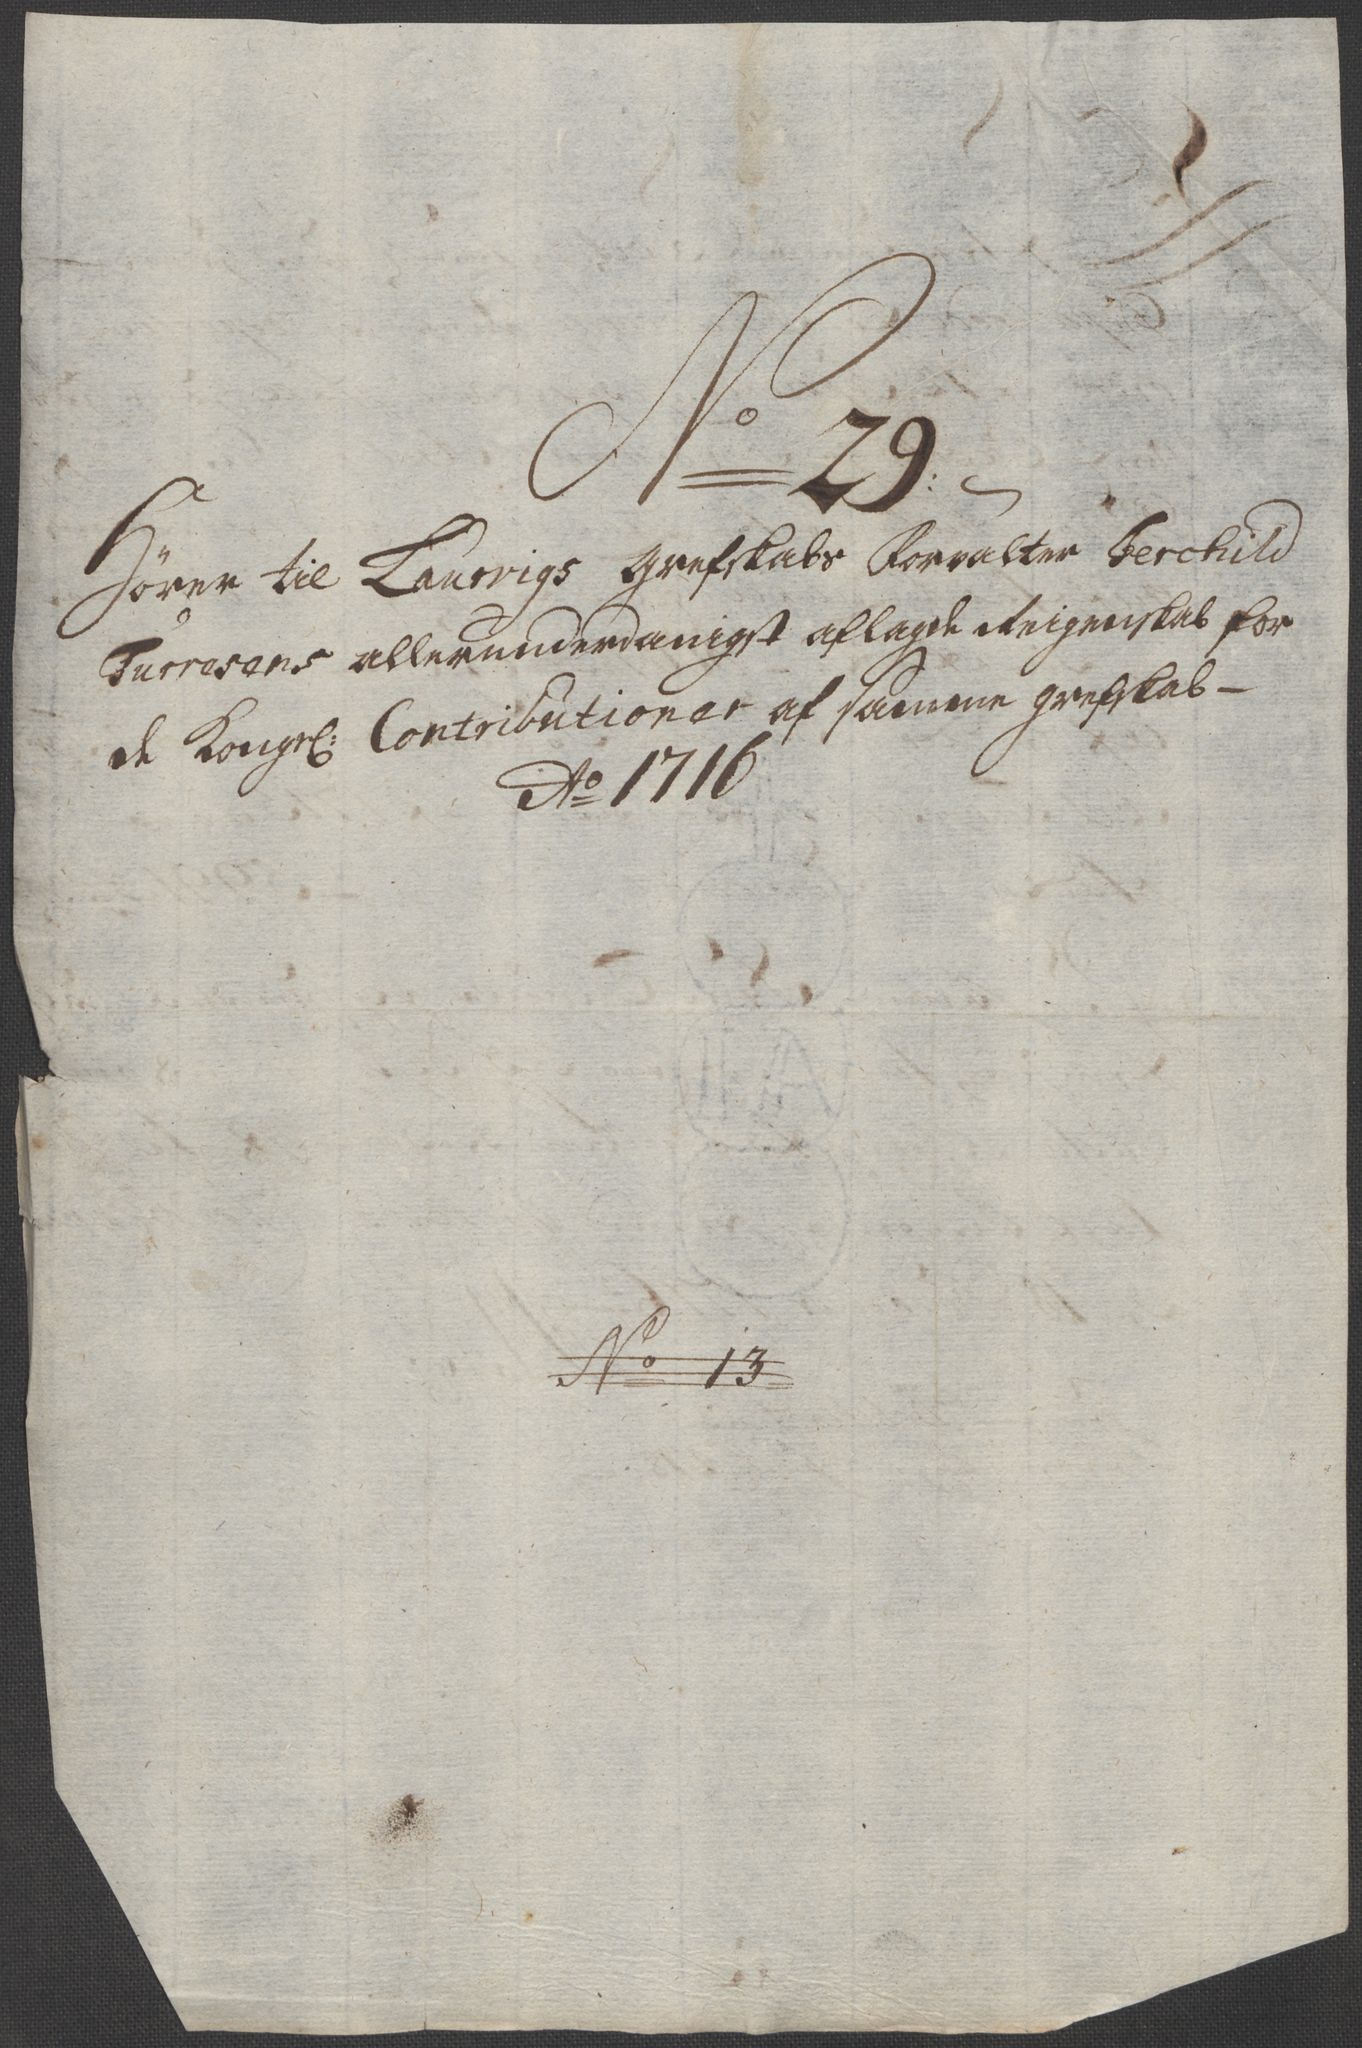 No 29:
Hører til Laurvigs Grefskabs Forvalter Terchild
Turresens allerunderdanigst aflagde Reigenskab for
de Kongel: Contributioner af samme grefskab –
Ao 1716
No 13